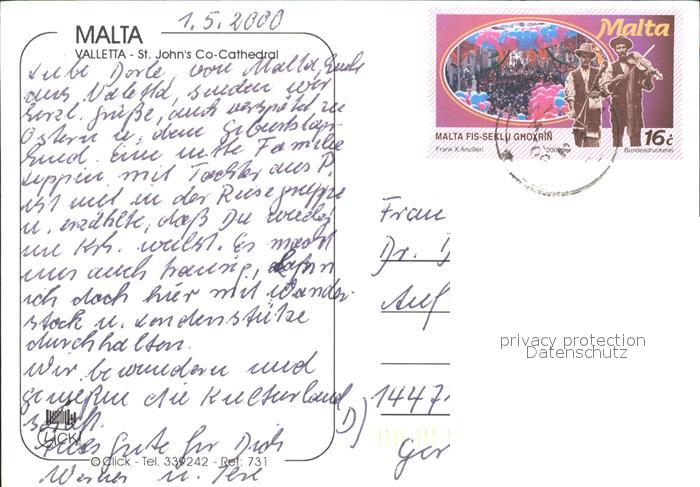 1.5.2000
MALTA
VALLETTA - St. John's Co-Cathedral
Liebe Dorle, von Malta, und
aus Valetta, senden wir
herzl. Grüße, auch verspätet zu
Ostern u. dem Geburtstags-
kind. Eine nette Familie
mit Tochter aus P.
ist mit in der Reisegruppe
u. erzählte, daß Du wieder
im Krh. weilst. Es macht
uns auch traurig,
ich doch hier mit Wander-
stock u. Lendenstütze
durchhalten.
Wir bewundern und
genießen die Kulturland
Alles Gute für Dich
Werner u.
CLICK!
© Click - Tel. 339242 - Ref: 731
Malta
MALTA FIS-SEKLU GĦOXRIN
16c
Frank X Ancilleri
Bundesdruckerei
Frau
Dr.
Auf
D) 1447
Ger
privacy protection
Datenschutz